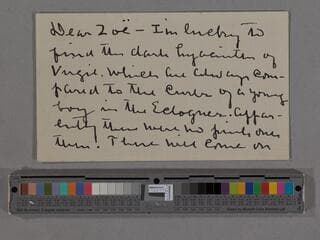 Dear Zoë – I'm trying to
find the dark hyacinths of
Virgil. Which are always com-
pared to the curls of a young
boy in the Eclogues. Appar-
ently there were no pink ones
then! These will come on